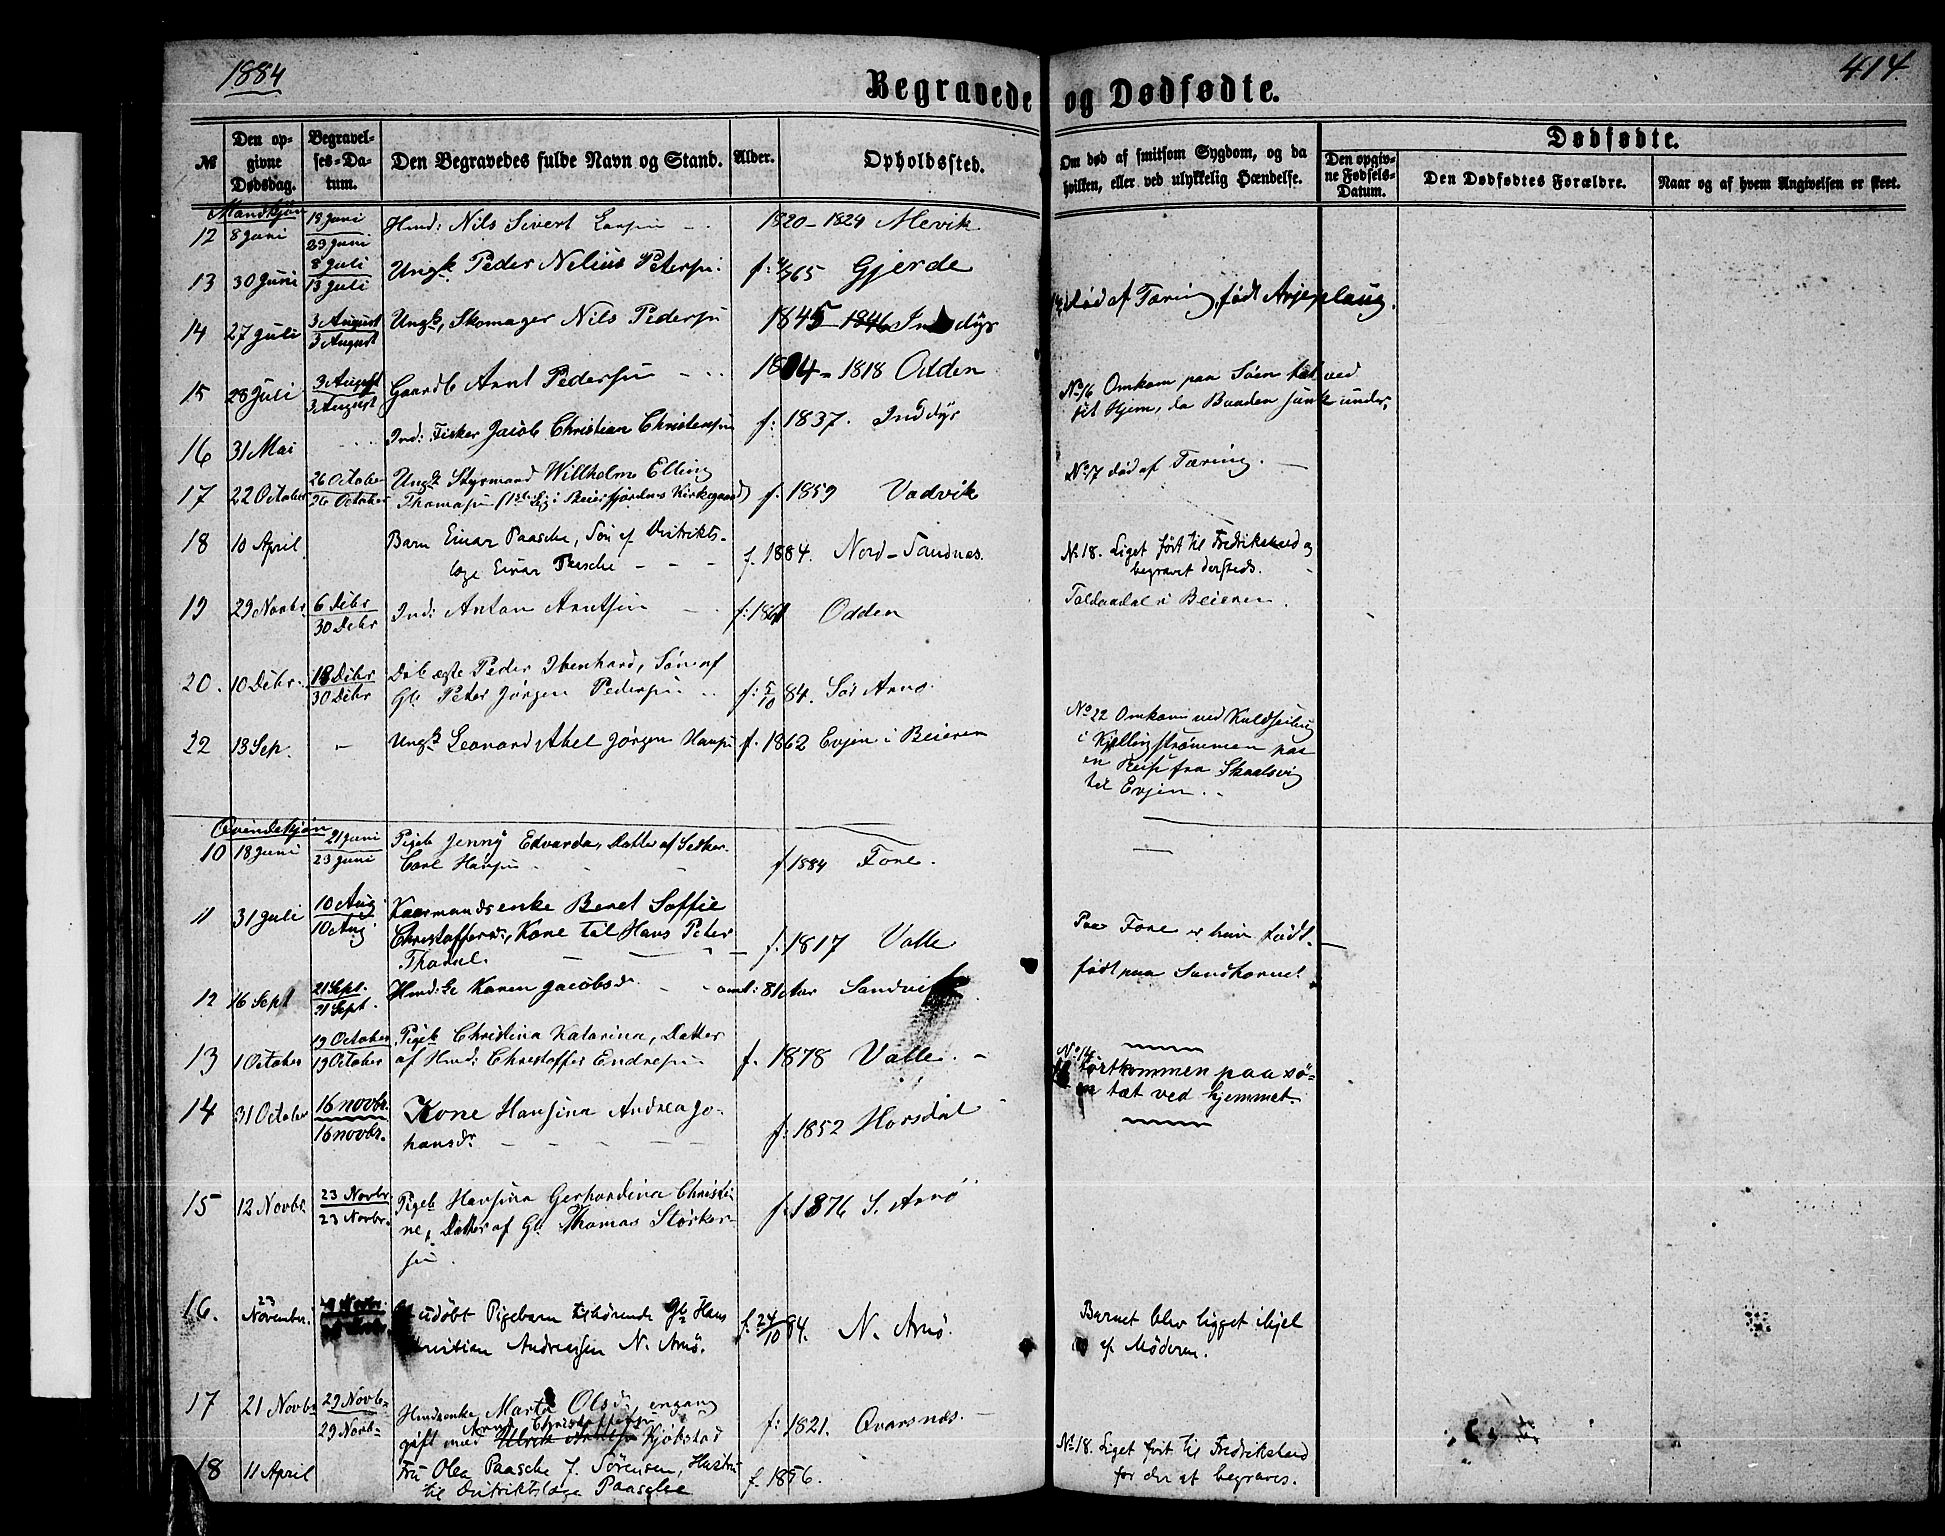 1884
414
Begravede og Dødfødte.
№
Den opgivne Dødsdag.
Begravelses-Datum.
Den Begravedes fulde Navn og Stand.
Alder.
Opholdssted.
Om død af smitsom Sygdom, og da hvilken, eller ved ulykkelig Hændelse.
Dødfødte.
Den opgivne Fødsels-Datum.
Den Dødfødtes Forældre.
Naar og af hvem Angivelsen er skeet.
Mandkjøn
12 8 Juni 18 Juni 23 Juni Hmd: Nils Sivert 1820-1824 Mevik
13 30 Juni 8 Juli 13 Juli Ungk Peder Nelius Petersen f: 65 Gjerde
14 27 Juli 3 August 3 August Ungk, Skomager Nils Pedersen 1845 1846 Inddyr
død af Tæring, født Arjeplaug.
15 28 Juli 3 August 3 August Gaardb Arnt Pedersen 1818 Odden
16 31 Mai Ind: Fisker Jacob Christian Christensen f: 1837. Inddyr
No 16 Omkom paa Søen tæt ved
sit Hjem, da Baaden sank under.
17 22 October 26 October 26 October Ungk Styrmand Willholm Elling
Thomasen (1ste Lig i Skeierfjordens Kirkegaard) f. 1859 Vadvik
No 17 død af Tæring.
18 10 April Barn Einar Paasche, Søn af Distrikts-
læge Einar Paasche f. 1884. Nord-Sandnes.
No 18. Liget ført til Fredrikshald og
begravet dersteds.
19 29 Novbr. 6 Debr 30 Debr Ind: Anton Arntsen f: 1861 Odden
i Beieren.
20. 10 Debr. 18 Debr 30 Debr Db ægte Peder Ibenhard, Søn af
Gb. Peter Jørgen Pedersen f: 5/10 84. Sør Arnø.
22 13 Sep. - Ungk Leonard Abel Jørgen Hansen f. 1862 Evjen i Beieren
No 22 Omkom ved Kuldseiling
i Kjellingstrømmen paa
en Reise fra Skaalsvig
til Evjen.
Qvindekjøn
10 18 Juni 21 Juni 23 Juni Pigeb Jenny Edvarda, Datter af
Carl Hansen f 1884 Fore.
11 31 Juli 10 Aug 10 Aug Kaarmandsenke Beret Soffie
Christoffersdr, Kone til Hans Peter
f. 1817 Valle
Paa Fore er hun født.
12 16 Sept 21 Sept. 21 Sept. Karen Jacobsdr omt: 81 Aar Sandvik
født paa Sandhornet
13 1 October 19 October 19 October Pigeb Christina Katarina, Datter
af Hmd: Christoffer Endresen f. 1878 Valle.
14 31 October 16 novbr. 16 novbr. Kone Hansina Andrea Jo-
hansdr f: 1852 Horsdal
No 14.
bortkommen paa sø-
en tæt ved hjemmet.
15 12 Novbr. 23 Novbr 23 Novbr. Pigeb Hansina Gerhardina Christi-
ne, Datter af Gb. Thomas Størker-
sen f. 1876 S. Arnø
16. 23 November. udøbt Pigebarn tilhørende Gb Hans
Kristian Andreassen N. Arnø. f. 24/10 84. N. Arnø.
Barnet blev ligget ihjel
af Moderen.
17 21 Novbr 29 Novb. 29 Novb. Hmdsenke Marta Olsdr engang
gift med Kjøkstad f: 1821. Qvarsnæs.
18 11 April Fru Olea Paasche f. Sørensen, Hustru
til Distriktslæge Paasche f. 1856.
No 18. Liget ført til Fredrikshald
for der at begraves.